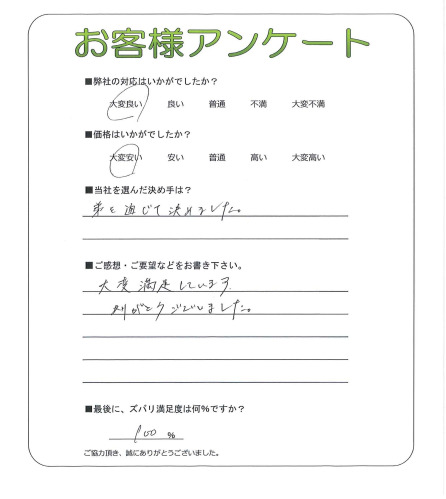 お客様アンケート
■弊社の対応はいかがでしたか？
大変良い 良い 普通 不満 大変不満
■価格はいかがでしたか？
大変安い 安い 普通 高い 大変高い
■当社を選んだ決め手は？
弟を通じて決めました。
■ご感想・ご要望などをお書き下さい。
大変満足しています
ありがとうございました。
■最後に、ズバリ満足度は何％ですか？
100 %
ご協力頂き、誠にありがとうございました。